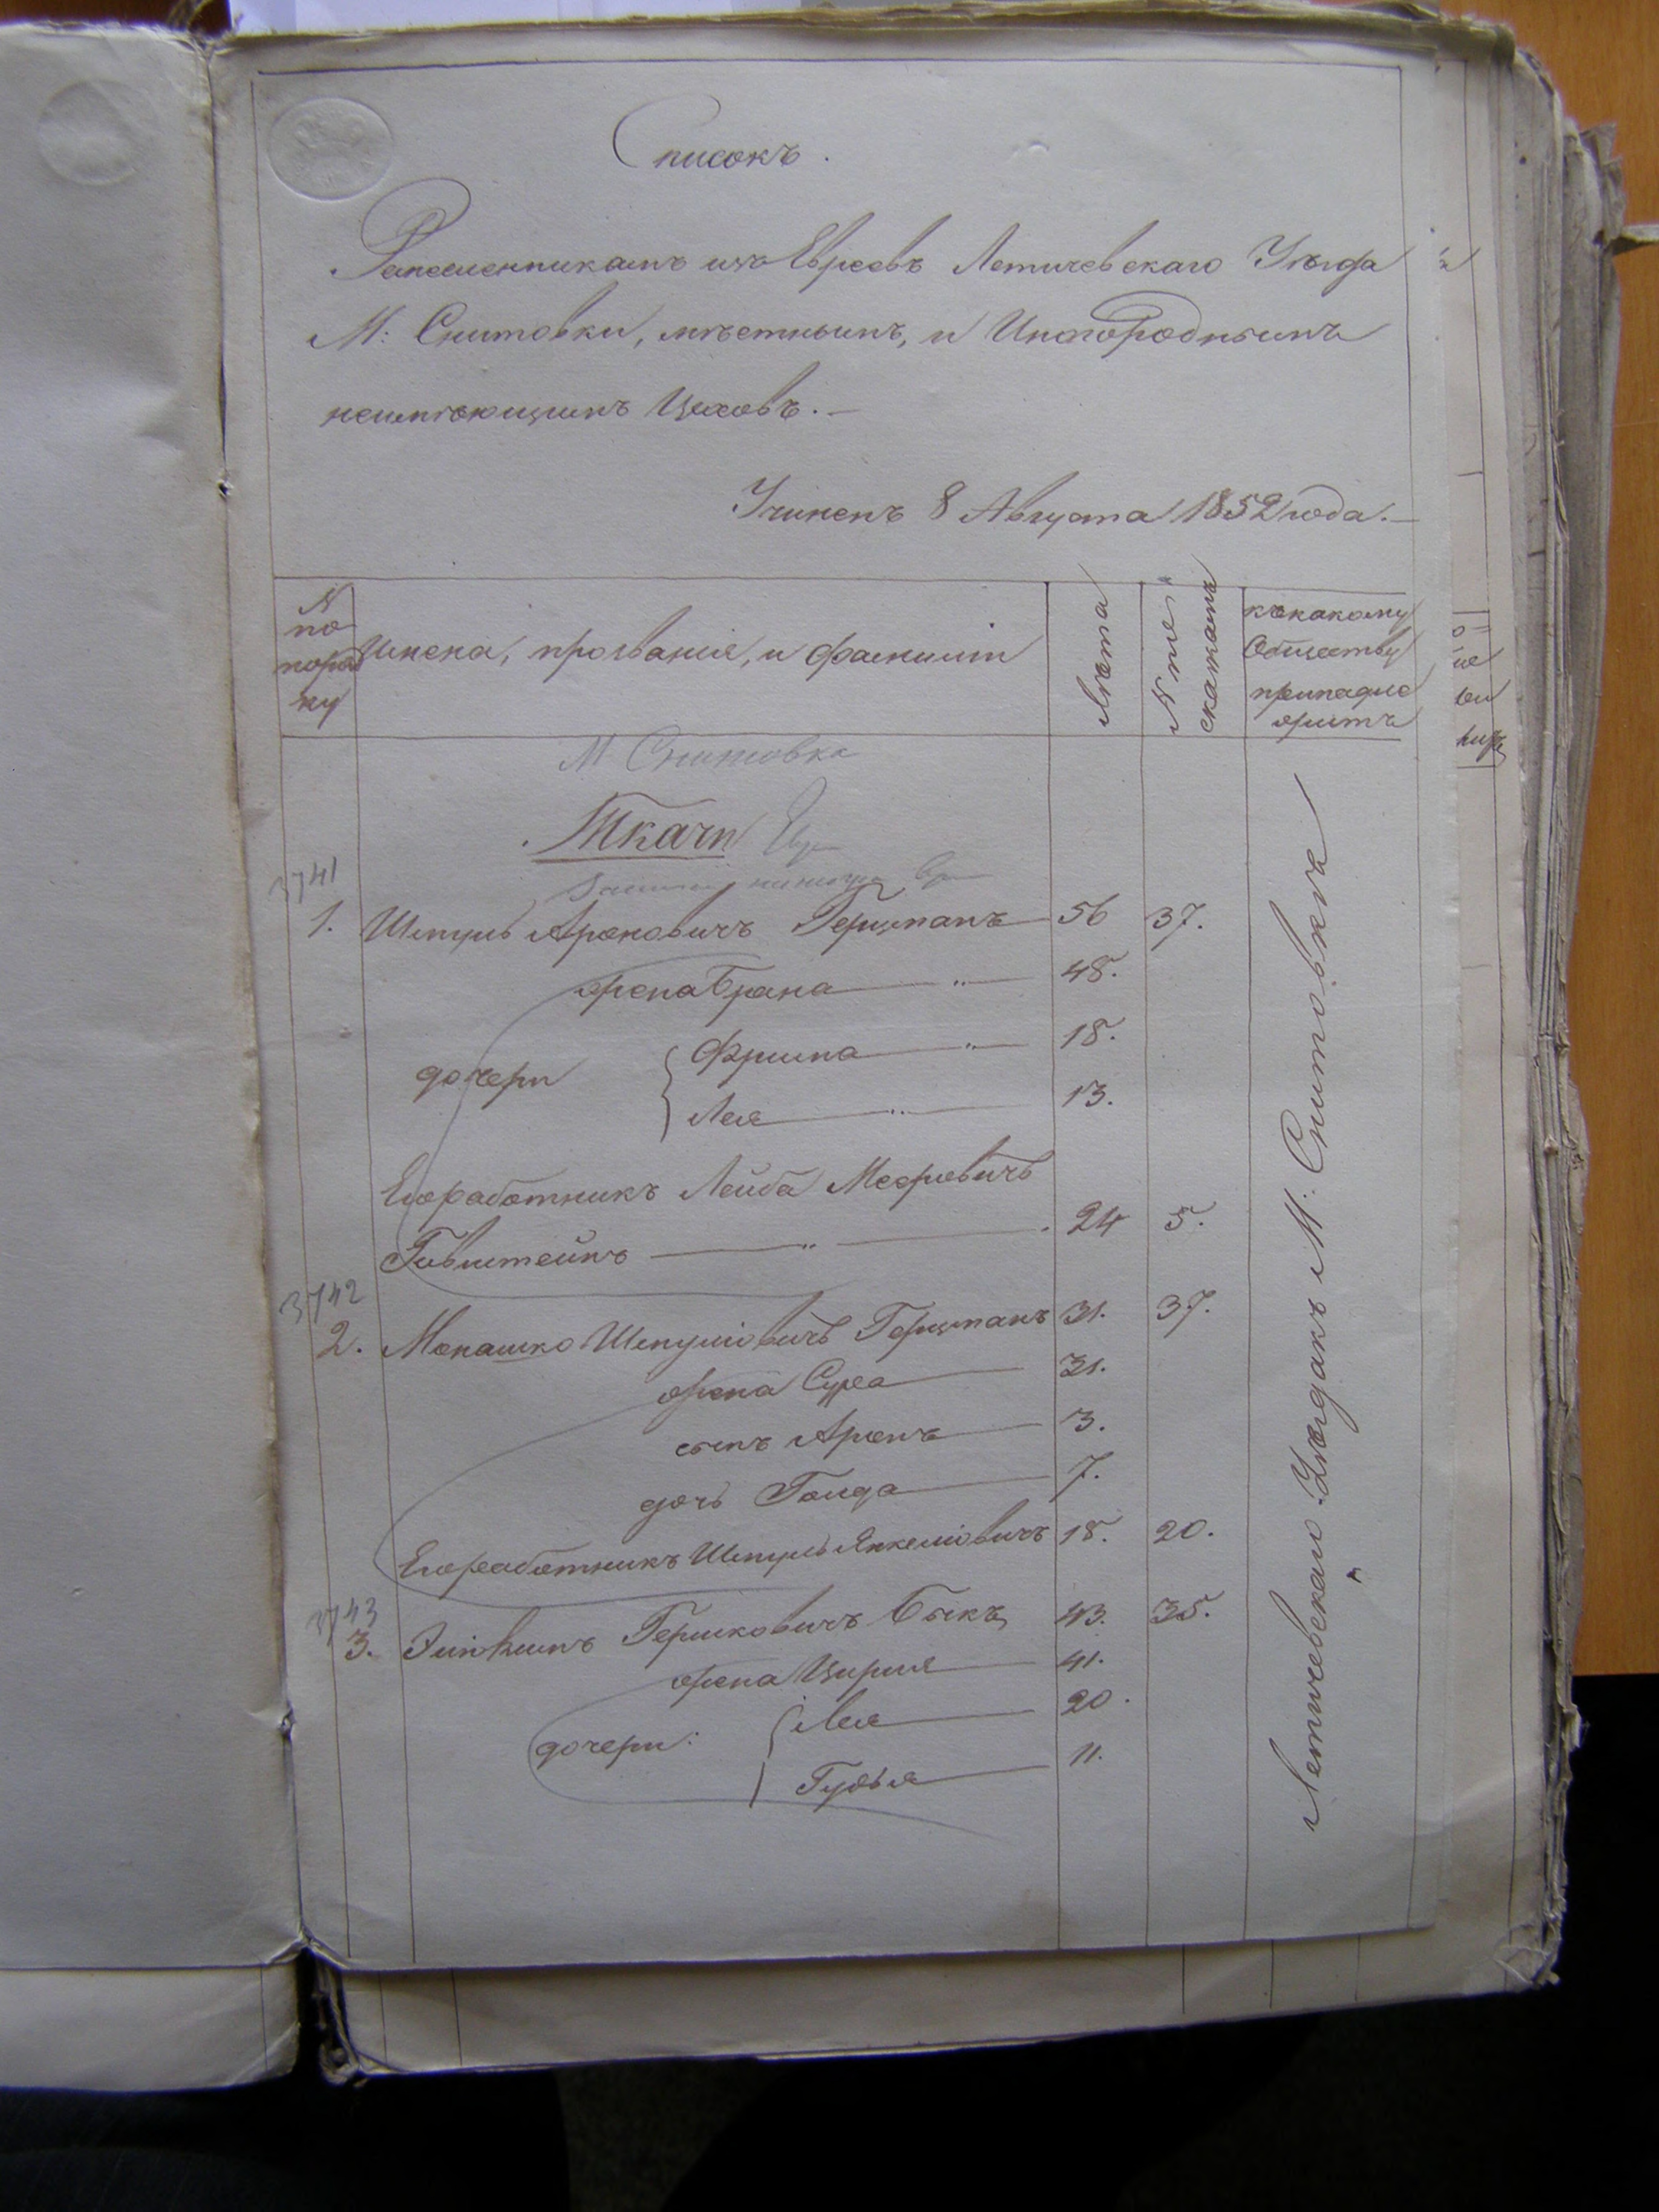 Списокъ.
Ремесленникамъ изъ Евреевъ Летичевскаго Уѣзда
М: Снитовки, мѣстнымъ, и Иногороднымъ
неимѣющимъ Цеховъ.—
Учиненъ 8 Августа 1852 года.—
N по поряд ку
Имена, прозванія, и фамиліи
Лѣта
N по сказкамъ
къ какому Обществу принадле житъ
М Снитовка
Ткачи
3741
1. Шмуль Ароновичъ Герцманъ 56 37.
жена Брана — „ — 48.
дочери { Фрима — „ — 18.
Лея — „ — 13.
Его работникъ Лейба Мееровичъ
Гивштейнъ — „ — 24 5.
3742
2. Монашко Шмуліовичъ Герцманъ 31. 37.
жена Сура 31.
сынъ Аронъ 3.
дочь Голда 7.
Его работникъ Шмуль Янкеліовичъ 18. 20.
3743
3. Эліокимъ Гершковичъ Быкъ 43. 35.
жена Цирля 41.
дочери: { Лея 20.
Гудья 11.
Летичевскаго Уѣзда къ М: Снитовкѣ